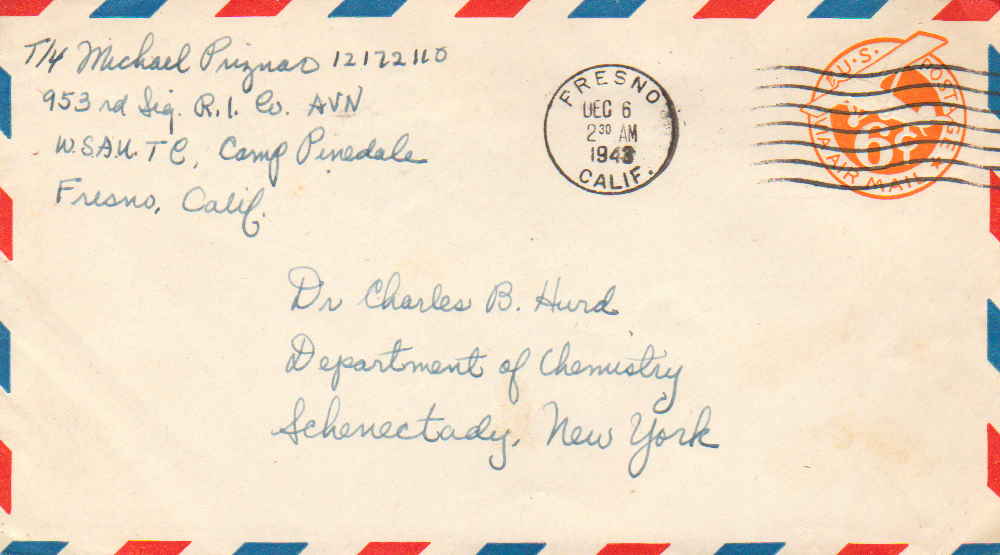 T/4 Michael Priznar 12172110
953rd Sig. R.I. Co. AVN
W.S.A.U.T.C, Camp Pinedale
Fresno, Calif.
FRESNO
DEC 6
2 30 AM
1943
CALIF.
U.S. POSTAGE
6¢
VIA AIR MAIL
Dr Charles B. Hurd
Department of Chemistry
Schenectady, New York